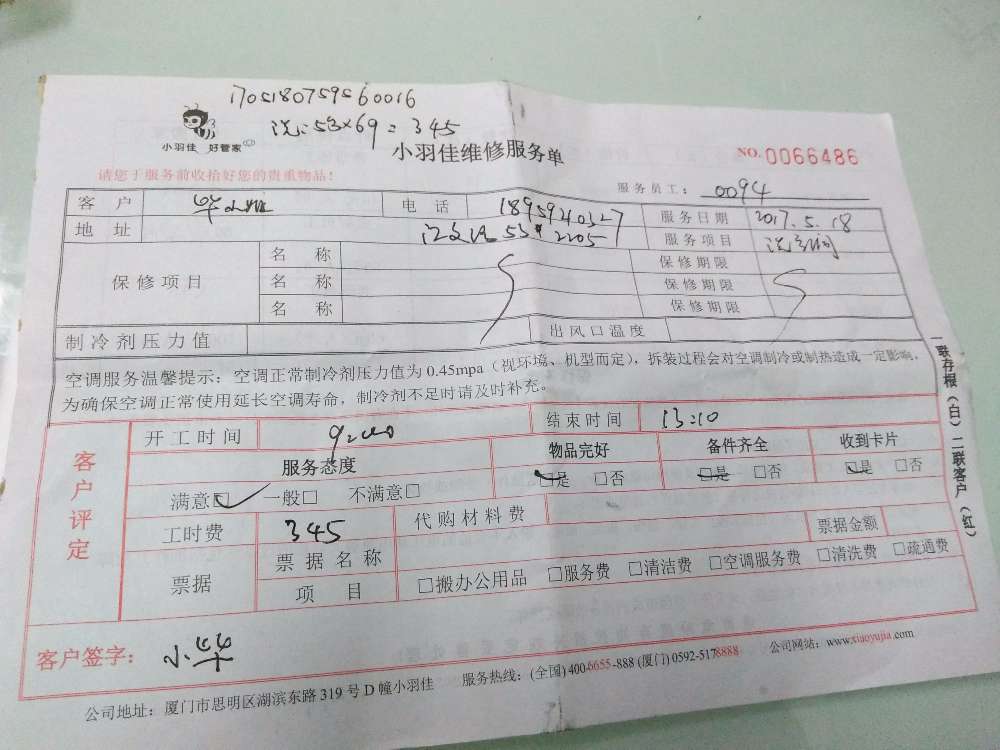 1705180759560016
洗：5台×69=345
小羽佳 好管家
小羽佳维修服务单
NO.0066486
请您于服务前收拾好您的贵重物品！
服务员工：0094
客户 华小姐 电话 服务日期 2017.5.18
地址 53# 2205 服务项目 洗空调
保修项目 名称 保修期限
名称 保修期限
名称 保修期限
制冷剂压力值 出风口温度
空调服务温馨提示：空调正常制冷剂压力值为 0.45mpa（视环境、机型而定），拆装过程会对空调制冷或制热造成一定影响。
为确保空调正常使用延长空调寿命，制冷剂不足时请及时补充。
客户评定
开工时间 9:00 结束时间 13:10
服务态度 物品完好 备件齐全 收到卡片
满意□ 一般□ 不满意□ □是 □否 □是 □否 □是 □否
工时费 345 代购材料费 票据金额
票据 票据名称
项目 □搬办公用品 □服务费 □清洁费 □空调服务费 □清洗费 □疏通费
客户签字：小华
公司地址：厦门市思明区湖滨东路 319 号 D 幢小羽佳 服务热线：(全国) 400-6655-888 (厦门) 0592-5178888 公司网站：www.xiaoyujia.com
一联存根（白）二联客户（红）